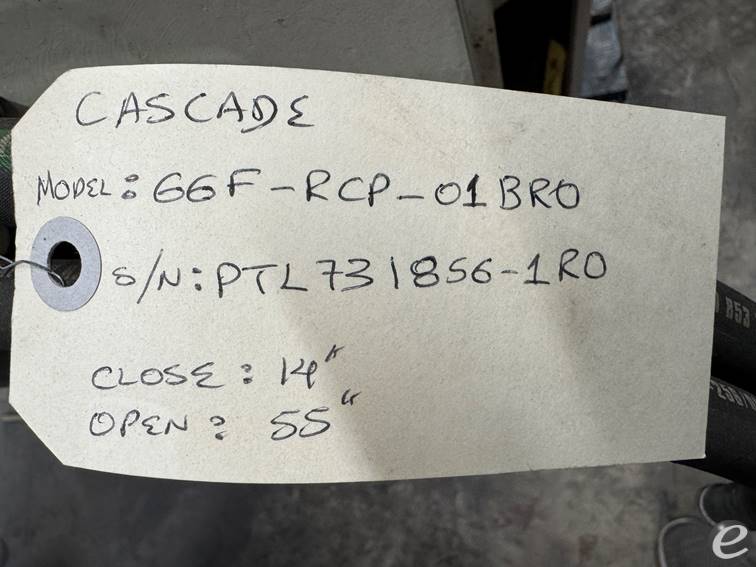 CASCADE
MODEL: 66F-RCP-01BRO
S/N: PTL731856-1RO
CLOSE: 14"
OPEN: 55"
R53
e